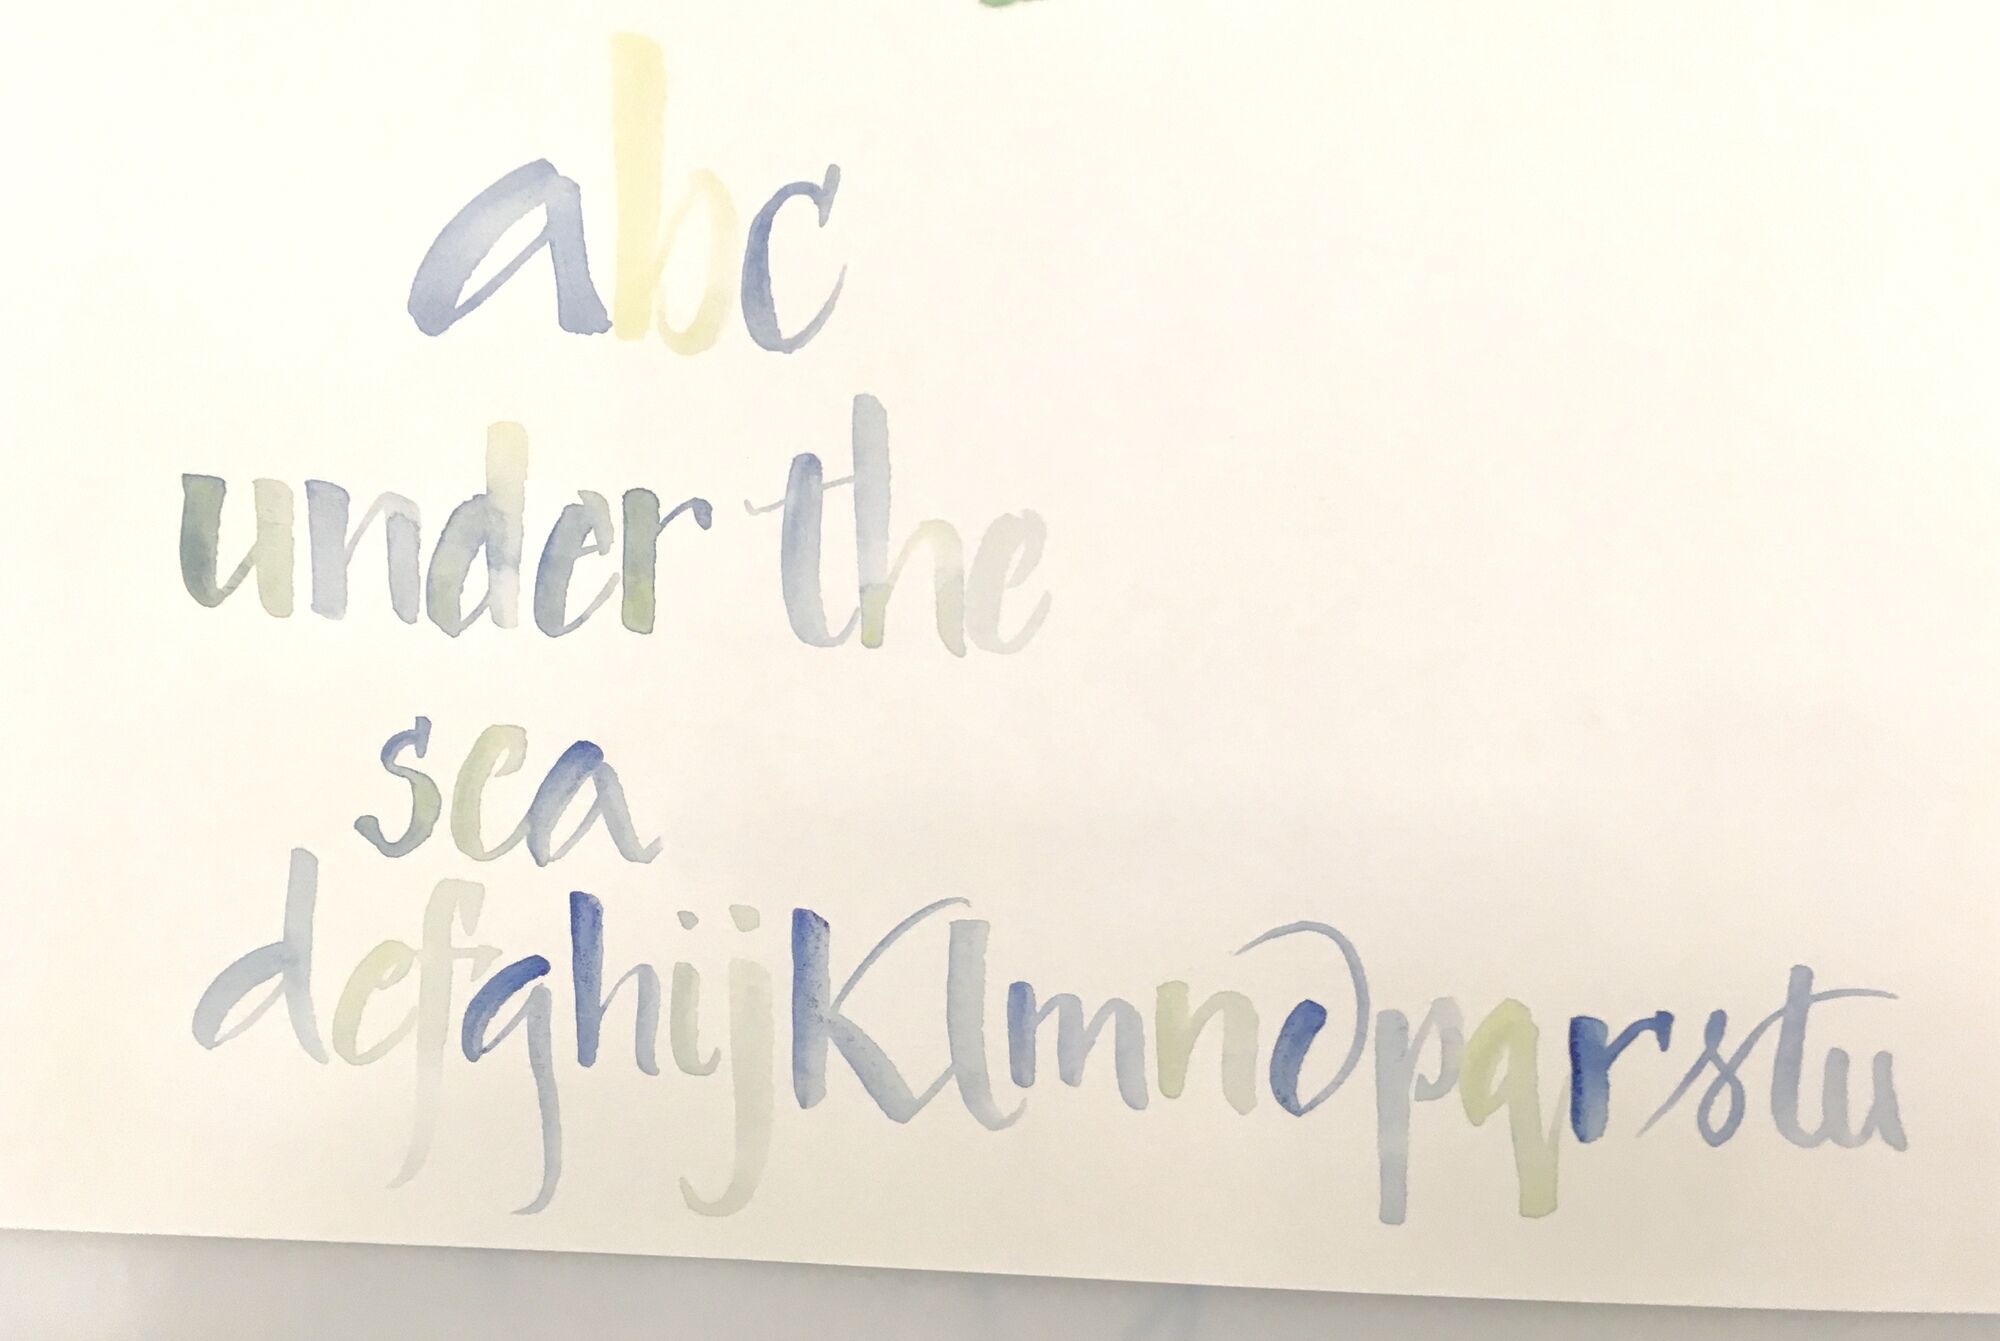 abc
under the
sea
defghijklmnopqrstu